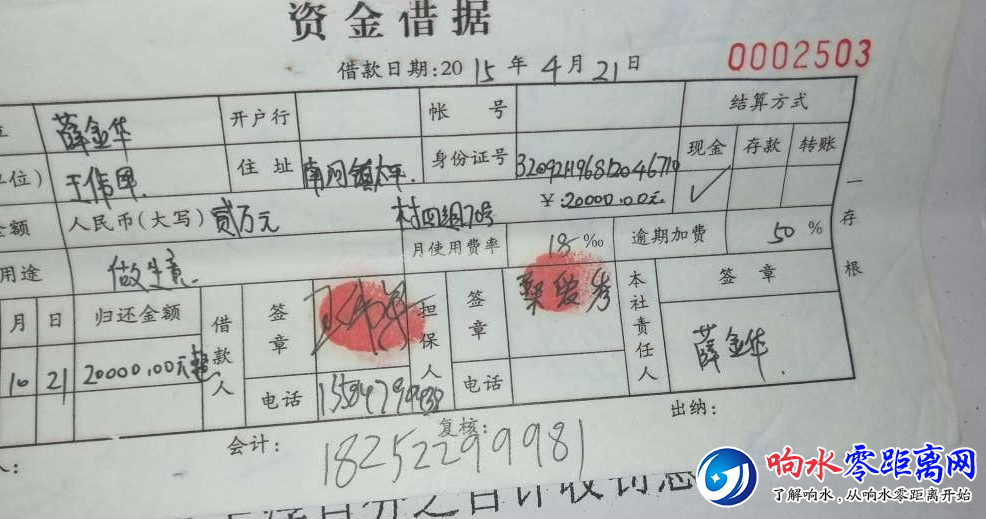 资金借据
借款日期:2015年4月21日
0002503
薛金华 开户行 帐号 结算方式
位) 王伟军 住址 南河镇太平 身份证号 现金 存款 转账
金额 人民币(大写) 贰万元 村四组70号 ¥:20000.00元 ✓
月使用费率 18‰ 逾期加费 50%
用途 做生意.
一存根
月 日 归还金额 借款人 签章 担保人 签章 桑爱芳 本社责任人 签章
10 21 20000.00元整 薛金华.
电话 电话
人: 会计: 复核: 出纳:
18252299981
响水零距离网
了解响水,从响水零距离开始